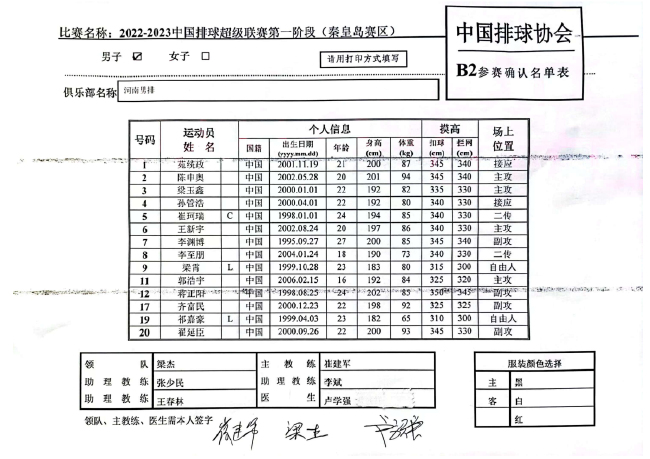 比赛名称：2022-2023中国排球超级联赛第一阶段（秦皇岛赛区）
中国排球协会
B2参赛确认名单表
男子 ☑ 女子 □
请用打印方式填写
俱乐部名称 河南男排
号码 运动员姓名 个人信息 摸高 场上位置
国籍 出生日期(yyyy.mm.dd) 年龄 身高(cm) 体重(kg) 扣球(cm) 拦网(cm)
1 苑续政 中国 2001.11.19 21 200 87 345 340 接应
2 陈申奥 中国 2002.05.28 20 201 94 345 340 主攻
3 梁玉鑫 中国 2000.01.01 22 192 82 335 330 主攻
4 孙管浩 中国 2000.04.01 22 192 80 340 330 接应
5 崔珂瑞 C 中国 1998.01.01 24 194 85 340 330 二传
6 王新宇 中国 2002.08.24 20 197 86 340 330 主攻
7 李渊博 中国 1995.09.27 27 200 85 345 340 副攻
8 李至朋 中国 2004.01.24 18 190 73 340 330 二传
9 梁霄 L 中国 1999.10.28 23 183 80 315 300 自由人
11 郭浩宇 中国 2006.02.15 16 192 84 325 320 主攻
12 蒋正阳 中国 1998.08.25 24 202 85 350 345 副攻
17 齐富民 中国 2000.12.23 22 198 92 325 325 副攻
19 祁嘉豪 L 中国 1999.04.03 23 182 65 310 300 自由人
20 崔延臣 中国 2000.09.26 22 200 93 345 330 副攻
领队 梁杰 主教练 崔建军
助理教练 张少民 助理教练 李斌
助理教练 王春林 医生 卢学强
服装颜色选择
主 黑
客 白
红
领队、主教练、医生需本人签字 崔建军 梁杰 卢学强